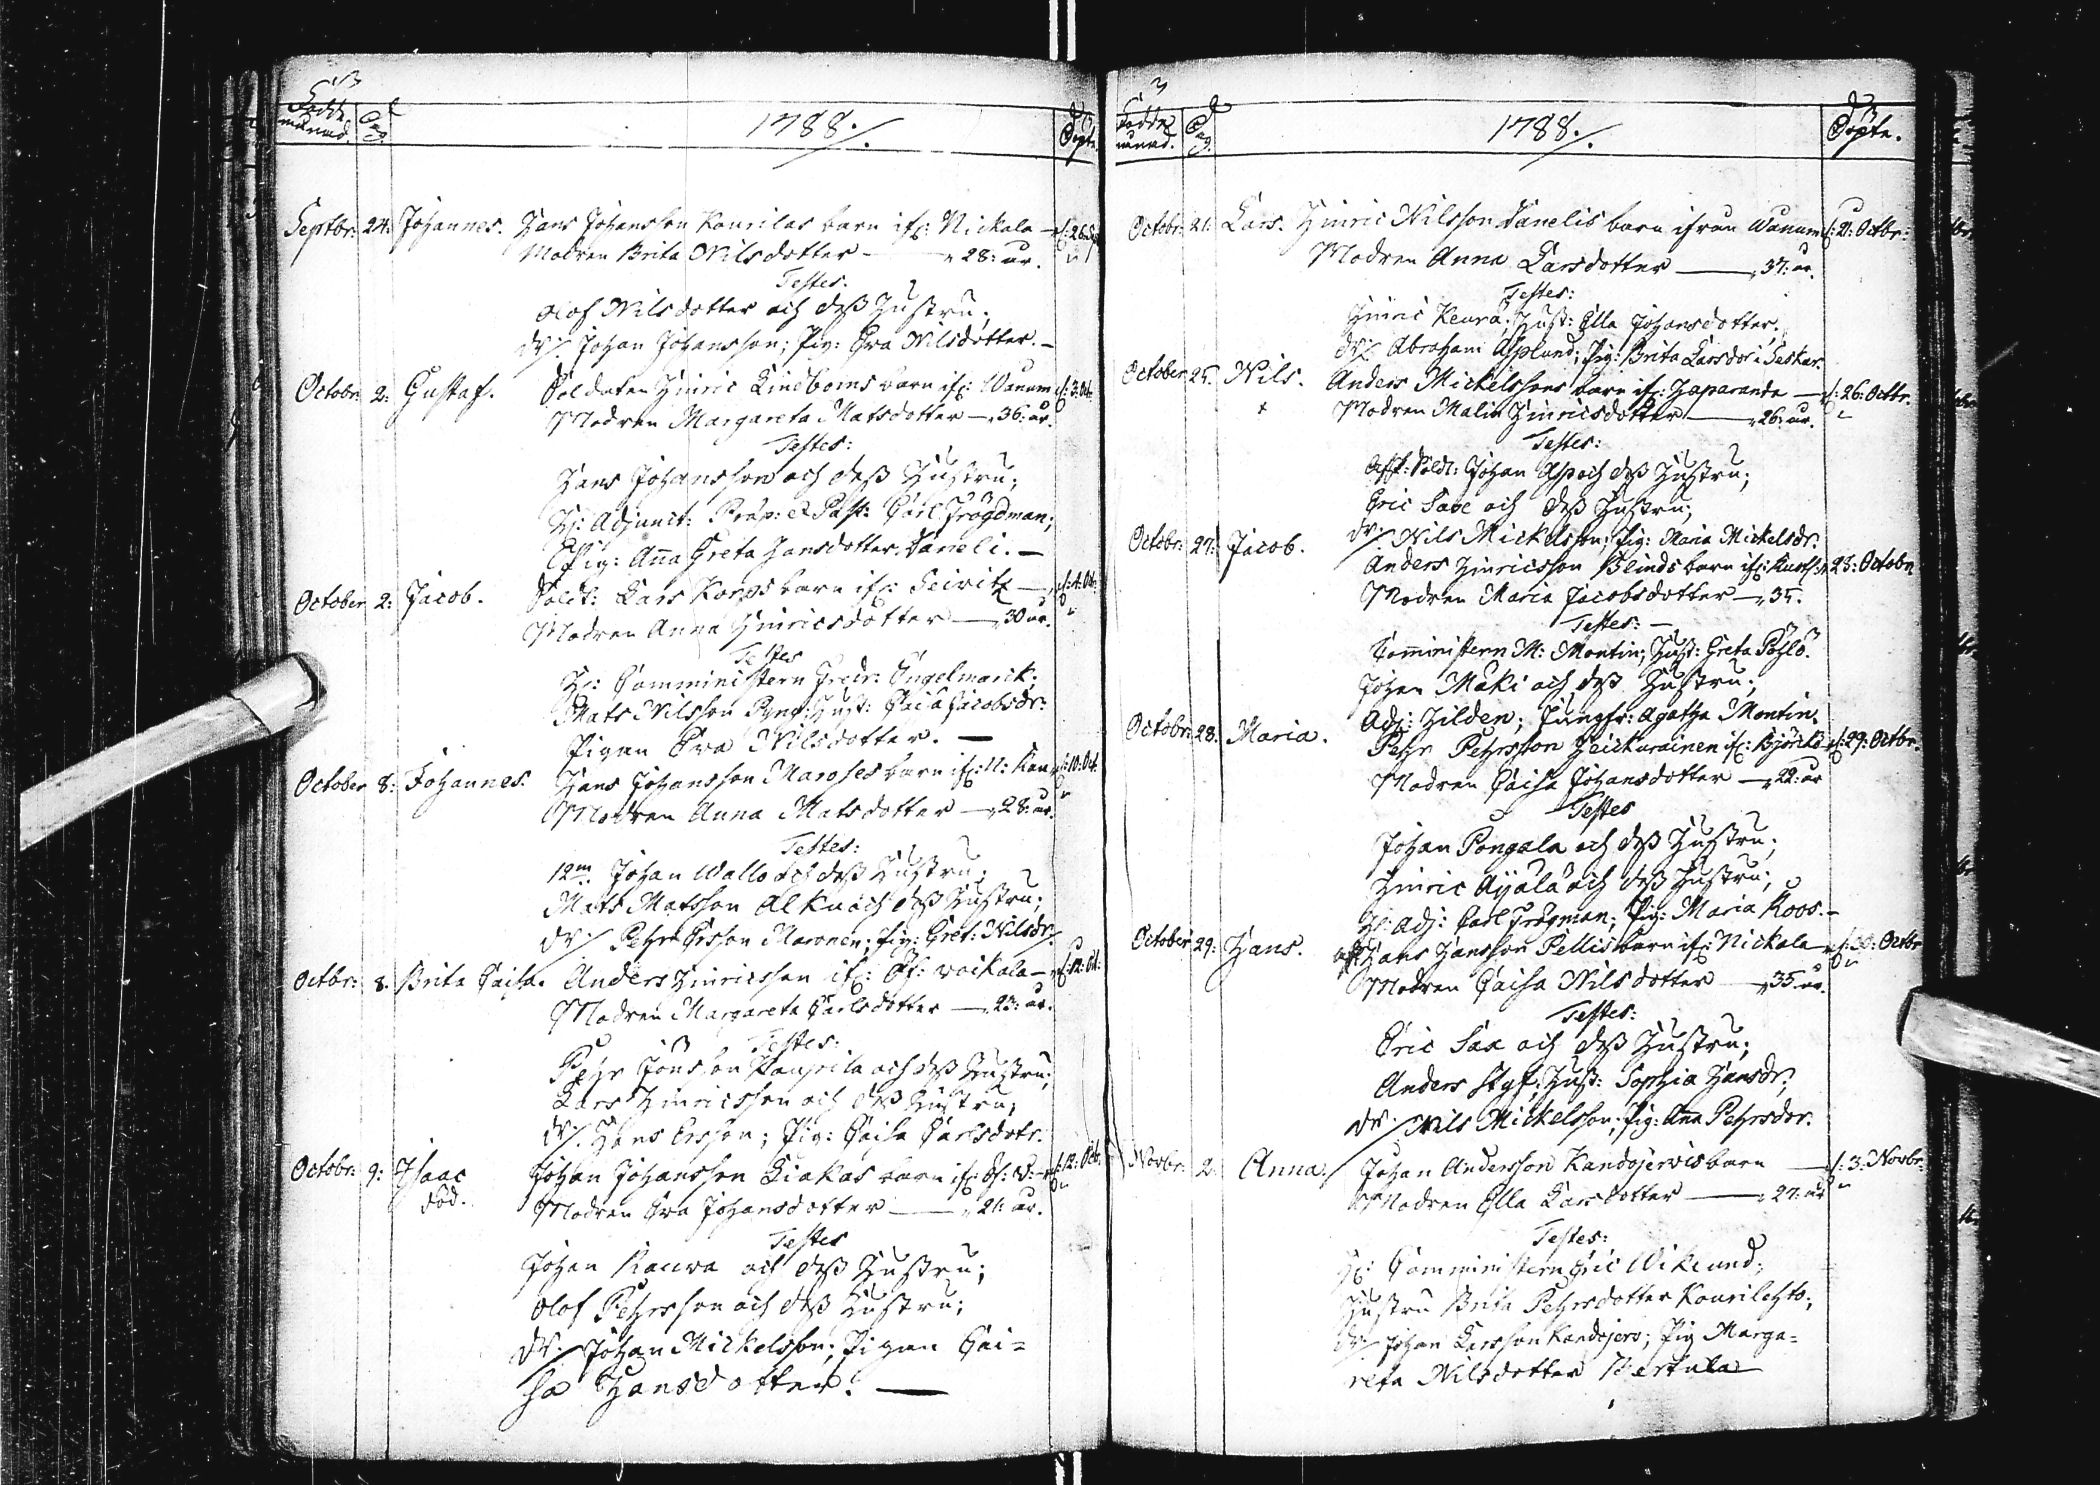 Födde månad. Dag. 1788. Döpte
Septbr: 24: Johannes. Hans Johansson Kourilas barn ifr: Nickala — d: 26: Sept
Modren Brita Nilsdotter — 28: år.
Testes.
Olof Nilsdotter och dess Hustru;
Dr: Johan Johansson; Pig: Eva Nilsdotter. —
Octobr: 2: Gustaf. Soldaten Hinric Lindboms barn ifr: Wanum d: 3: Oct
Modren Margareta Matsdotter — 36: år.
Testes:
Hans Johansson och dess Hustru;
Hr: Adjunct: Präp: et Past: Carl Frögdman;
Pig: Anna Greta Hansdotter Daneli. —
October 2: Jacob. Soldt: Lars Korps barn ifr: Seivits — d: 4: Ob:
Modren Anna Hinricsdotter — 30 år.
Testes
Hr: Comministern Fredr: Engelmarck;
Mats Nilsson Hust: Caisa Jacobsdr:
Pigan Eva Nilsdotter. —
October 8: Johannes. Hans Johansson Maroses barn ifr: N: Kau d: 10: Oct
Modren Anna Matsdotter — 28: år.
Testes:
12m: Johan Wallo och dess Hustru;
Mats Matsson Alku och dess Hustru;
Dr: Pehr Ersson Maronen; Pig: Gret: Nilsdr.
Octbr: 8. Brita Caisa. Anders Hinricsson ifr: Öf: woikala — d: 12: Oct:
Modren Margareta Carlsdotter — 23: år.
Testes:
Pehr Jönsson Kauprila och dess Hustru;
Lars Hinricsson och dess Hustru;
Dr: Hans Ersson; Pig: Caisa Carlsdotr.
Octobr: 9: Isaac Johan Johansson Liakas barn ifr: Öf: W: — d: 12: Octb:
död. Modren Eva Johansdotter — 21: år.
Testes
Johan Kauva och dess Hustru;
Olof Pehrsson och dess Hustru;
Dr: Johan Mickelsson; Pigan Cai=
sa Hansdotter. —
Födde månad. Dag. 1788. Döpte.
Octobr: 21: Lars. Hinric Nilsson Danelis barn ifrån Wanum d: 21: Octbr:
Modren Anna Larsdotter — 37: år.
Testes:
Hinric Keurä; Hust: Ella Johansdotter;
Dr: Abraham Asplund; Pig: Brita Larsdor i Seskar.
October 25. Nils. Anders Mickelssons barn ifr: Haparanda — d: 26: Octbr.
+ Modren Malin Hinricsdotter — 26: år.
Testes:
Afsk: Soldt: Johan Asp och dess Hustru;
Eric Saxe och dess Hustru;
Dr: Nils Mickelsson; Pig: Maria Mickelsdr.
Octobr: 27: Jacob. Anders Hinricsson Blinds barn ifr: 28: Octobr.
Modren Maria Jacobsdotter — 35.
Testes: —
Comministern M: Montin; Hust: Greta
Johan Mäki och dess Hustru;
Adj: Hilden; Jungfr: Agatha Montin.
Octobr: 28: Maria. Pehr Pehrsson Heickurainen ifr: Björckö d: 29: Octbr.
Modren Caisa Johansdotter — 22: år
Testes
Johan Pongala och dess Hustru;
Hinric Ayälä och dess Hustru;
Hr: Adj: Carl Frögman; Pig: Maria Roos. —
October 29: Hans. Hans Hansson Pellis barn ifr: Nickala — d: 30: Octbr
Modren Caisa Nilsdotter — 35: år.
Testes:
Eric Sax och dess Hustru;
Anders Styf; Hust: Sophia Hansdr.
Dr: Nils Mickelsson; Pig: Anna Pehrsdor.
Novbr: 2. Anna. Johan Andersson Kandojervis barn — d: 3: Novbr:
Modren Ella Larsdotter — 27: år
Testes:
Hr: Comministern Eric Wiklund;
Hustru Brita Pehrsdotter Kourilehto;
Dr: Johan Larsson Kandojerv; Pig Marga=
reta Nilsdotter Bertula